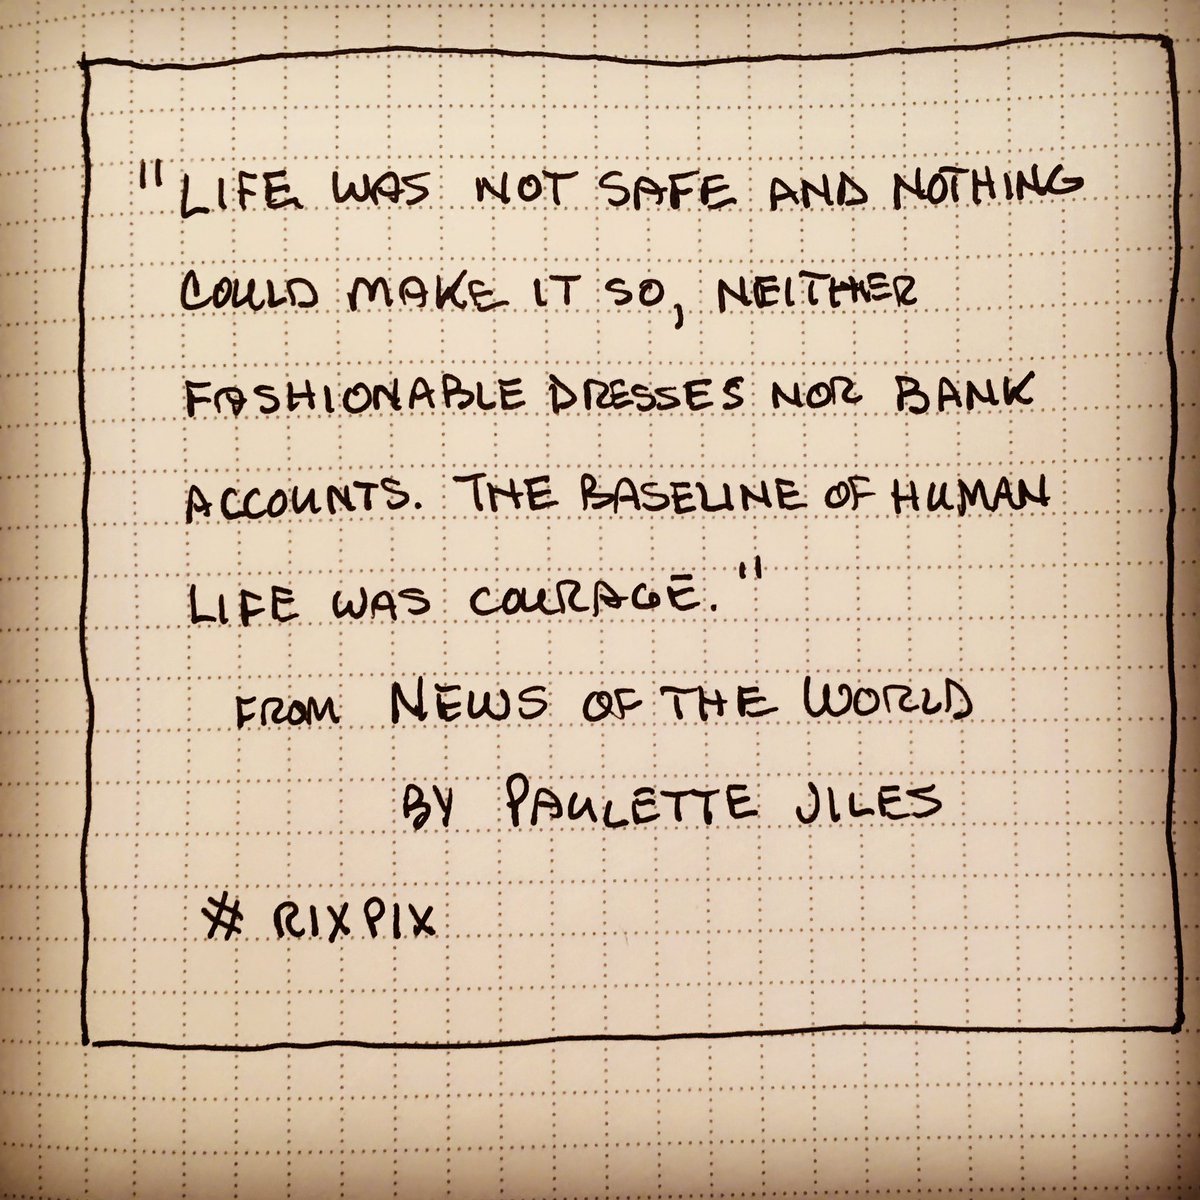 "LIFE WAS NOT SAFE AND NOTHING
COULD MAKE IT SO, NEITHER
FASHIONABLE DRESSES NOR BANK
ACCOUNTS. THE BASELINE OF HUMAN
LIFE WAS COURAGE."
FROM NEWS OF THE WORLD
BY PAULETTE JILES
# RIXPIX